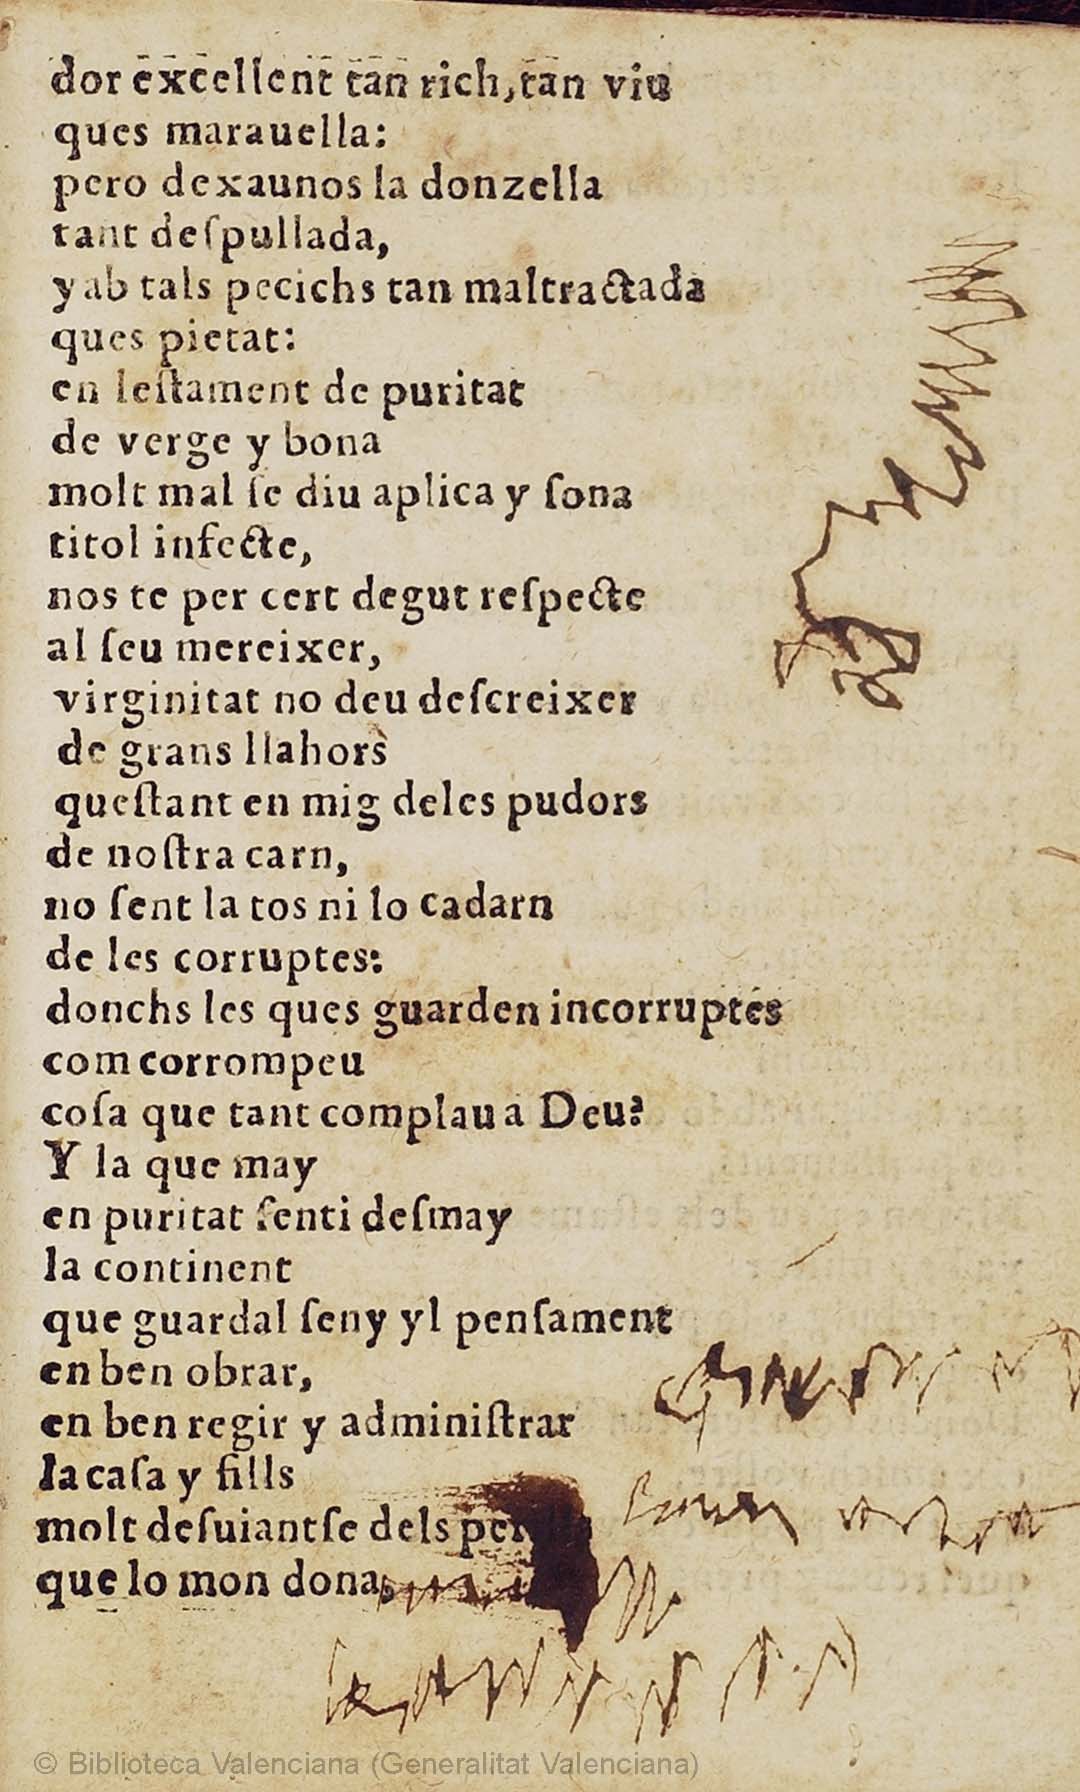 dor excellent tan rich, tan viu
ques marauella:
pero dexaunos la donzella
tant deſpullada,
y ab tals pecichs tan maltractada
ques pietat:
en leſtament de puritat
de verge y bona
molt mal ſe diu aplica y ſona
titol infecte,
nos te per cert degut reſpecte
al ſeu mereixer,
virginitat no deu deſcreixer
de grans llahors
queſtant en mig deles pudors
de noſtra carn,
no ſent la tos ni lo cadarn
de les corruptes:
donchs les ques guarden incorruptes
com corrompeu
coſa que tant complau a Deu?
Y la que may
en puritat ſenti deſmay
la continent
que guardal ſeny yl penſament
en ben obrar,
en ben regir y adminiſtrar
la caſa y fills
molt deſuiantſe dels
que lo mon dona,
© Biblioteca Valenciana (Generalitat Valenciana)